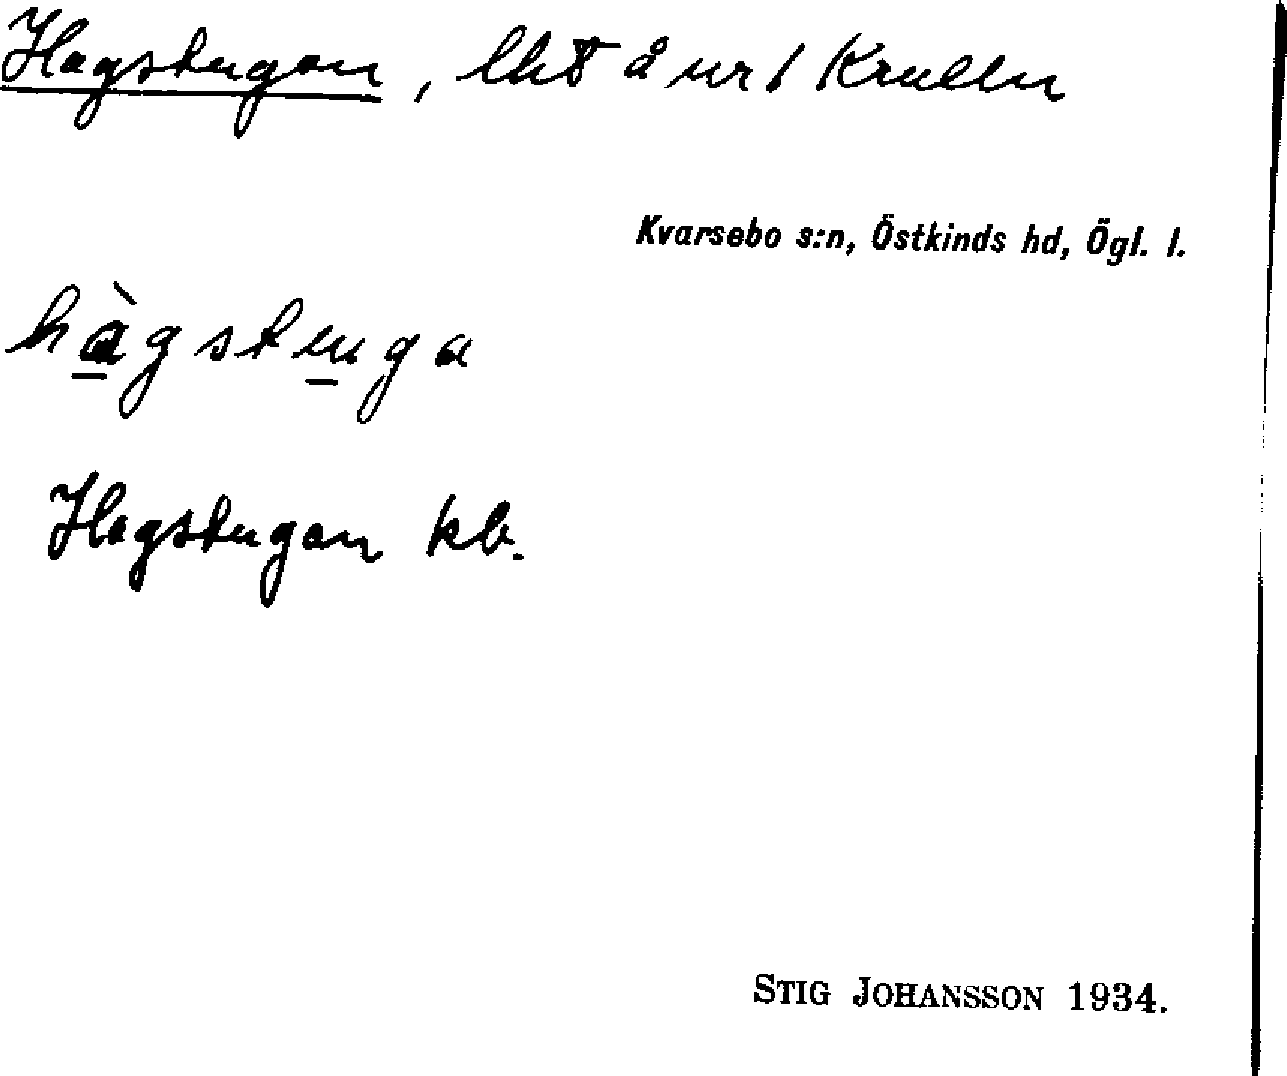 Hagstugan, lht å nr 1 Krullen
Kvarsebo s:n, Östkinds hd, Ögl. l.
hàgstuga
Hagstugan kb.
STIG JOHANSSON 1934.